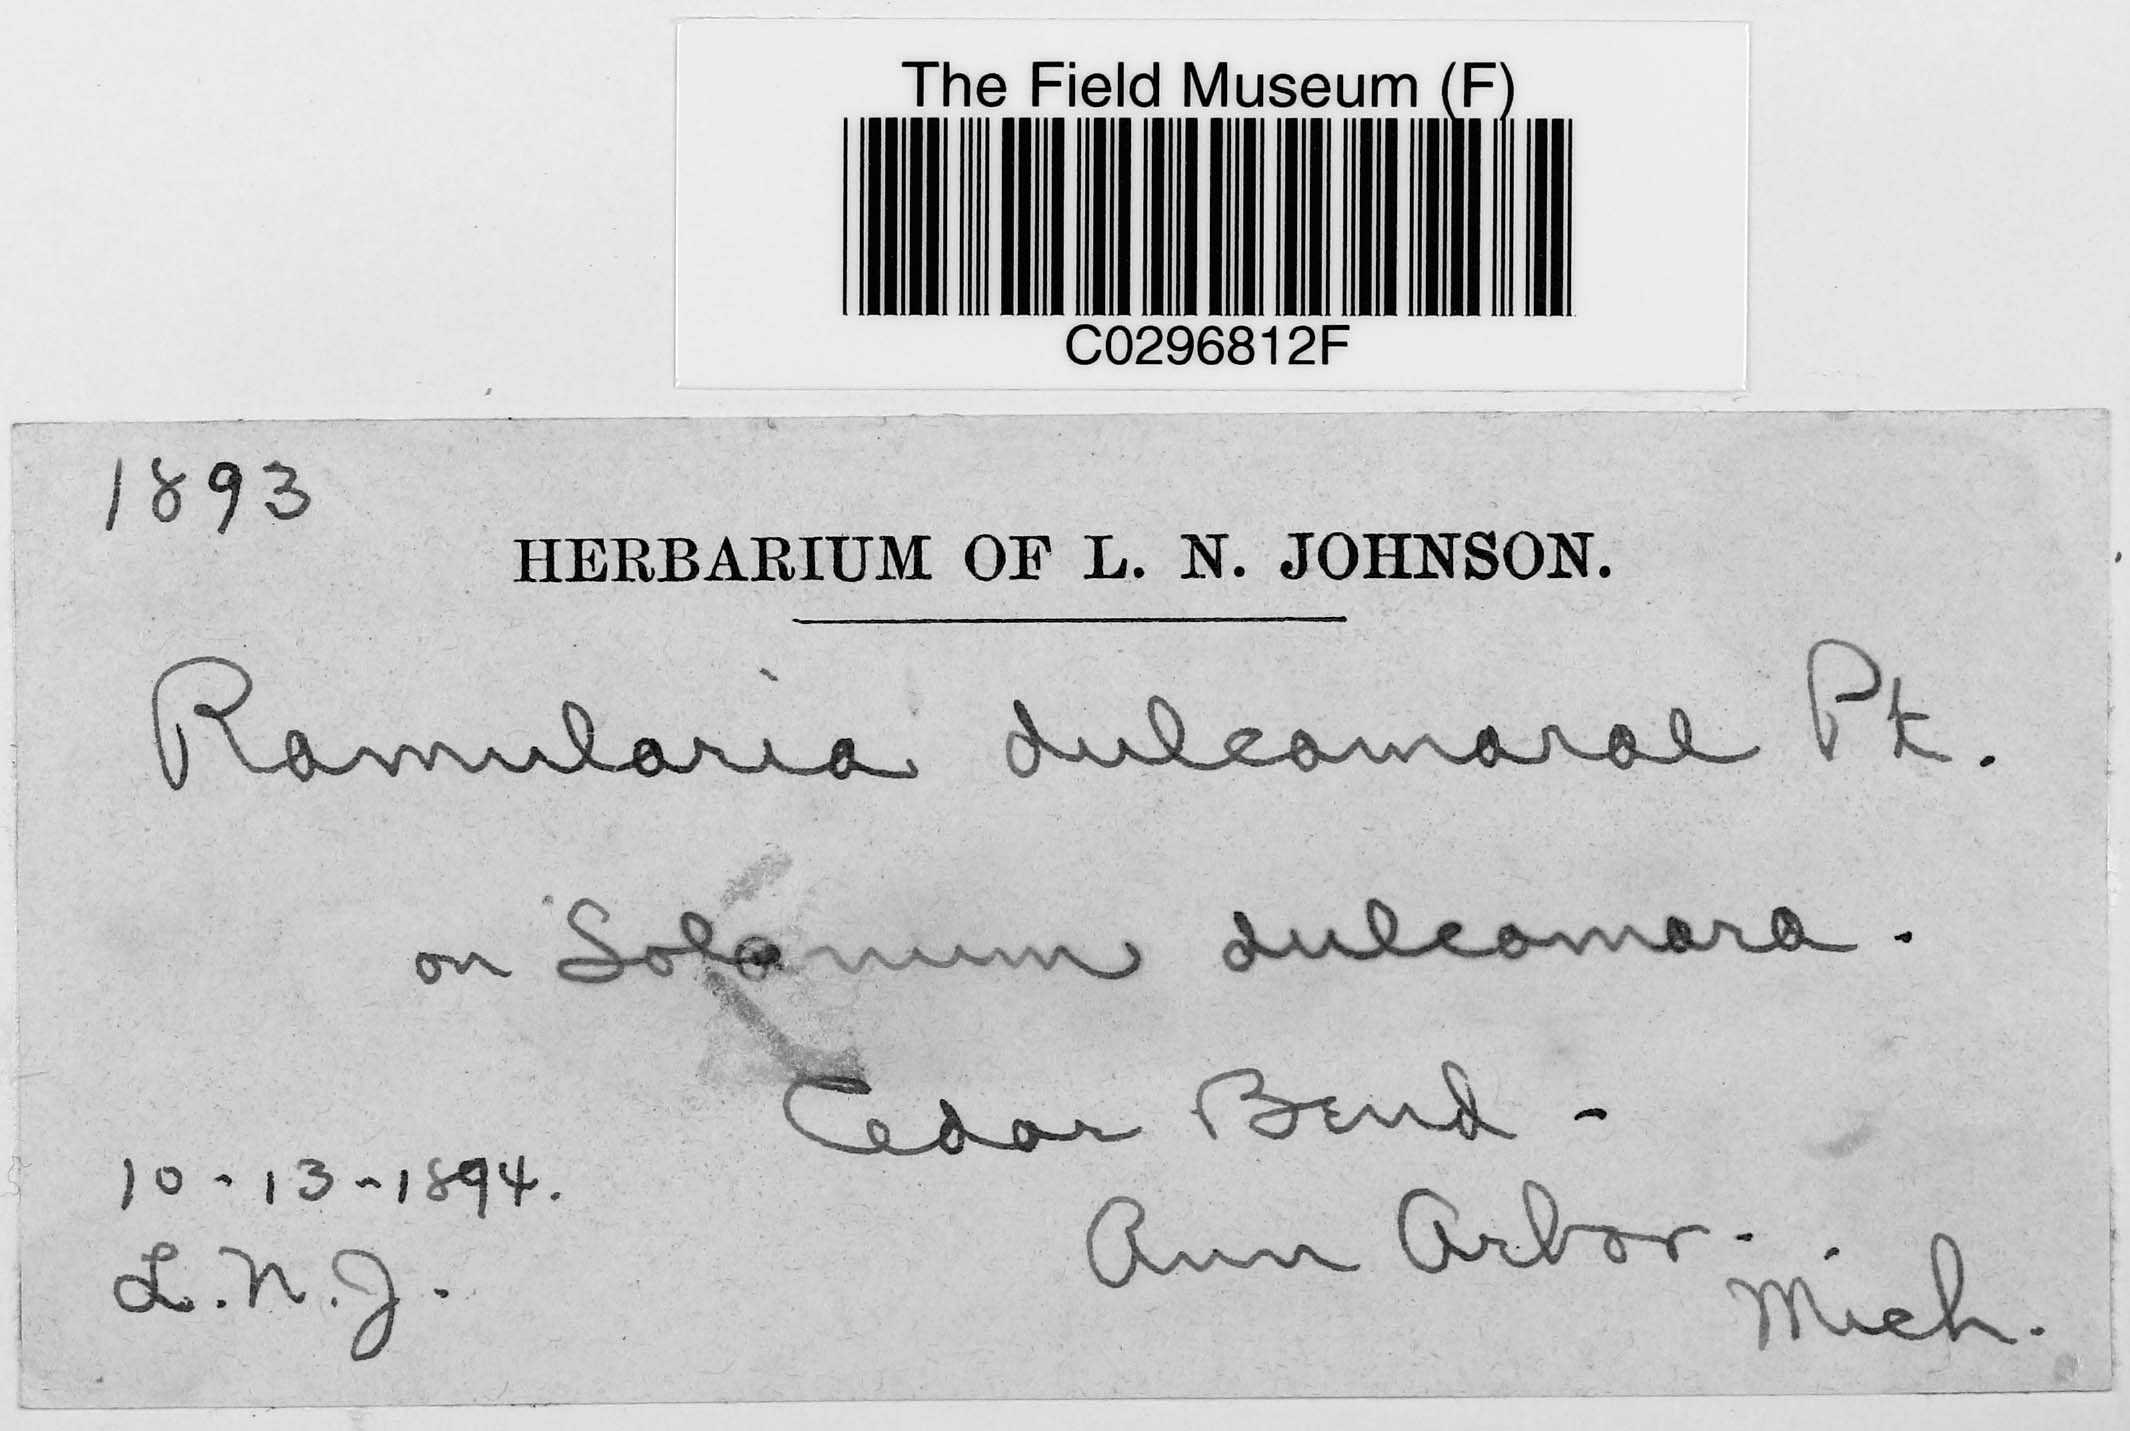 The Field Museum (F)
C0296812F
1893
HERBARIUM OF L. N. JOHNSON.
Ramularia dulcamarae Pk.
on Solanum dulcamara.
Cedar Bend -
10-13-1894.
Ann Arbor.
L.N.J.
Mich.